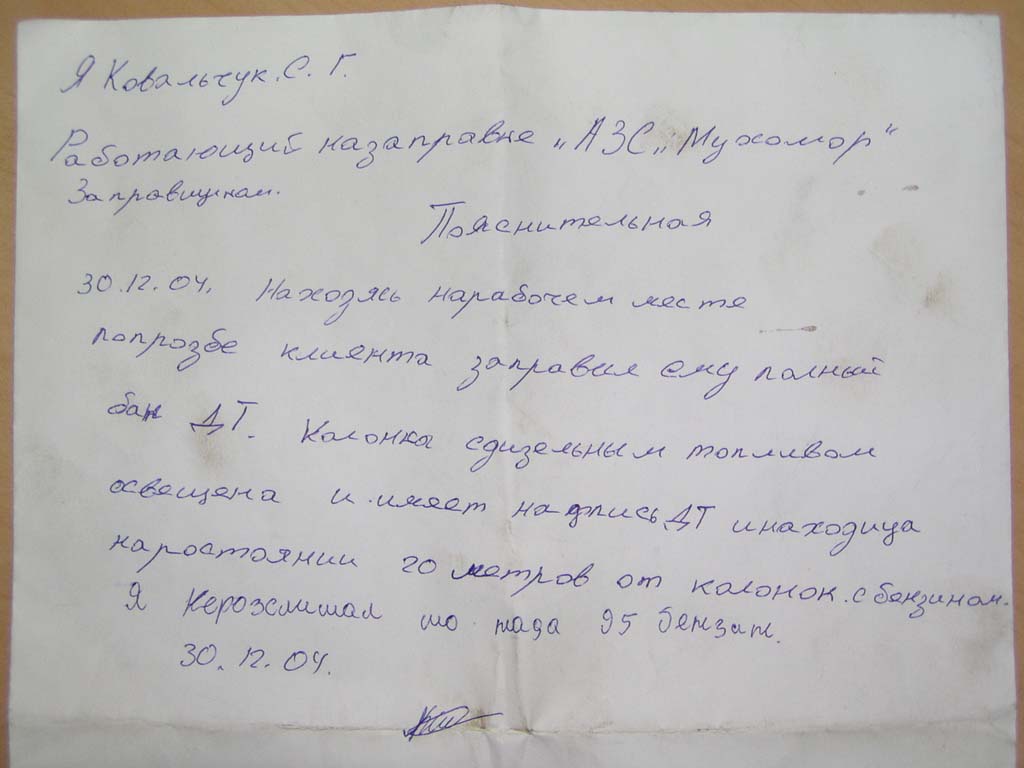 Я Ковальчук. С. Г.
Работающий назаправке „АЗС „Мухомор“
Заправщиком.
Пояснительная
30.12.04. Находясь нарабочем месте
попрозбе клиента заправил ему полный
бак ДТ. Колонка сдизельным топливом
освещена и имеет надпись ДТ инаходица
наростоянии 20 метров от колонок с бензином.
Я нерозслишал шо нада 95 бензин.
30.12.04.